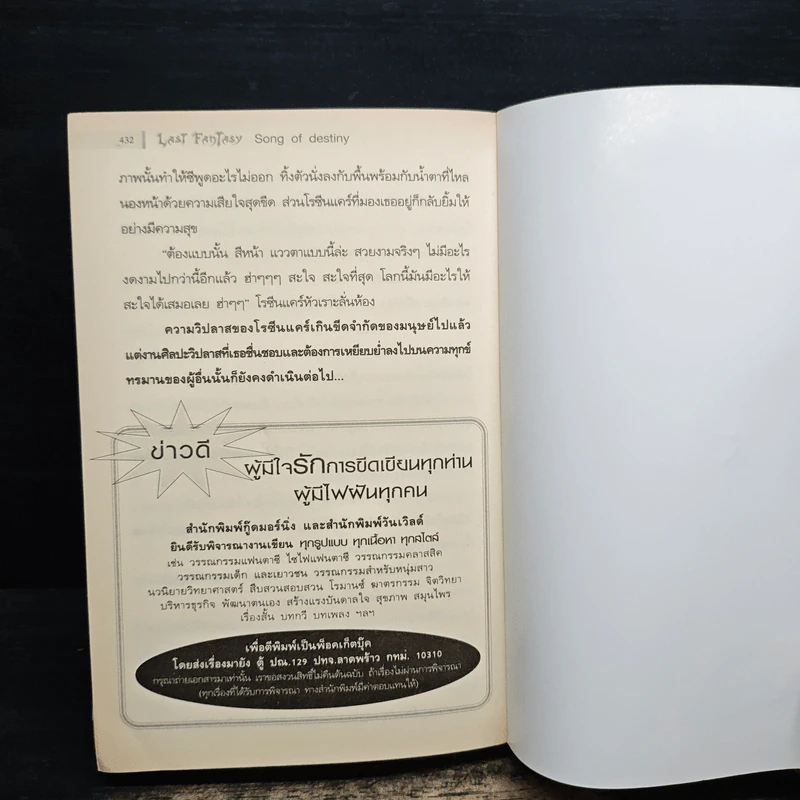 432 | Last Fantasy Song of destiny
ภาพนั้นทำให้ซีพูดอะไรไม่ออก ทิ้งตัวนั่งลงกับพื้นพร้อมกับน้ำตาที่ไหล
นองหน้าด้วยความเสียใจสุดขีด ส่วนโรซีนแคร์ที่มองเธออยู่ก็กลับยิ้มให้
อย่างมีความสุข
"ต้องแบบนั้น สีหน้า แววตาแบบนี้ล่ะ สวยงามจริงๆ ไม่มีอะไร
งดงามไปกว่านี้อีกแล้ว ฮ่าๆๆๆ สะใจ สะใจที่สุด โลกนี้มันมีอะไรให้
สะใจได้เสมอเลย ฮ่าๆๆ" โรซีนแคร์หัวเราะลั่นห้อง
ความวิปลาสของโรซีนแคร์เกินขีดจำกัดของมนุษย์ไปแล้ว
แต่งานศิลปะวิปลาสที่เธอชื่นชอบและต้องการเหยียบย่ำลงไปบนความทุกข์
ทรมานของผู้อื่นนั้นก็ยังคงดำเนินต่อไป...
ข่าวดี
ผู้มีใจรักการขีดเขียนทุกท่าน
ผู้มีไฟฝันทุกคน
สำนักพิมพ์กู๊ดมอร์นิ่ง และสำนักพิมพ์วันเวิลด์
ยินดีรับพิจารณางานเขียน ทุกรูปแบบ ทุกเนื้อหา ทุกสไตล์
เช่น วรรณกรรมแฟนตาซี ไซไฟแฟนตาซี วรรณกรรมคลาสสิค
วรรณกรรมเด็ก และเยาวชน วรรณกรรมสำหรับหนุ่มสาว
นวนิยายวิทยาศาสตร์ สืบสวนสอบสวน โรมานซ์ ฆาตกรรม จิตวิทยา
บริหารธุรกิจ พัฒนาตนเอง สร้างแรงบันดาลใจ สุขภาพ สมุนไพร
เรื่องสั้น บทกวี บทเพลง ฯลฯ
เพื่อตีพิมพ์เป็นพ็อคเก็ตบุ๊ค
โดยส่งเรื่องมายัง ตู้ ปณ.129 ปทจ.ลาดพร้าว กทม. 10310
กรุณาถ่ายเอกสารมาเท่านั้น เราขอสงวนสิทธิ์ไม่คืนต้นฉบับ ถ้าเรื่องไม่ผ่านการพิจารณา
(ทุกเรื่องที่ได้รับการพิจารณา ทางสำนักพิมพ์มีค่าตอบแทนให้)